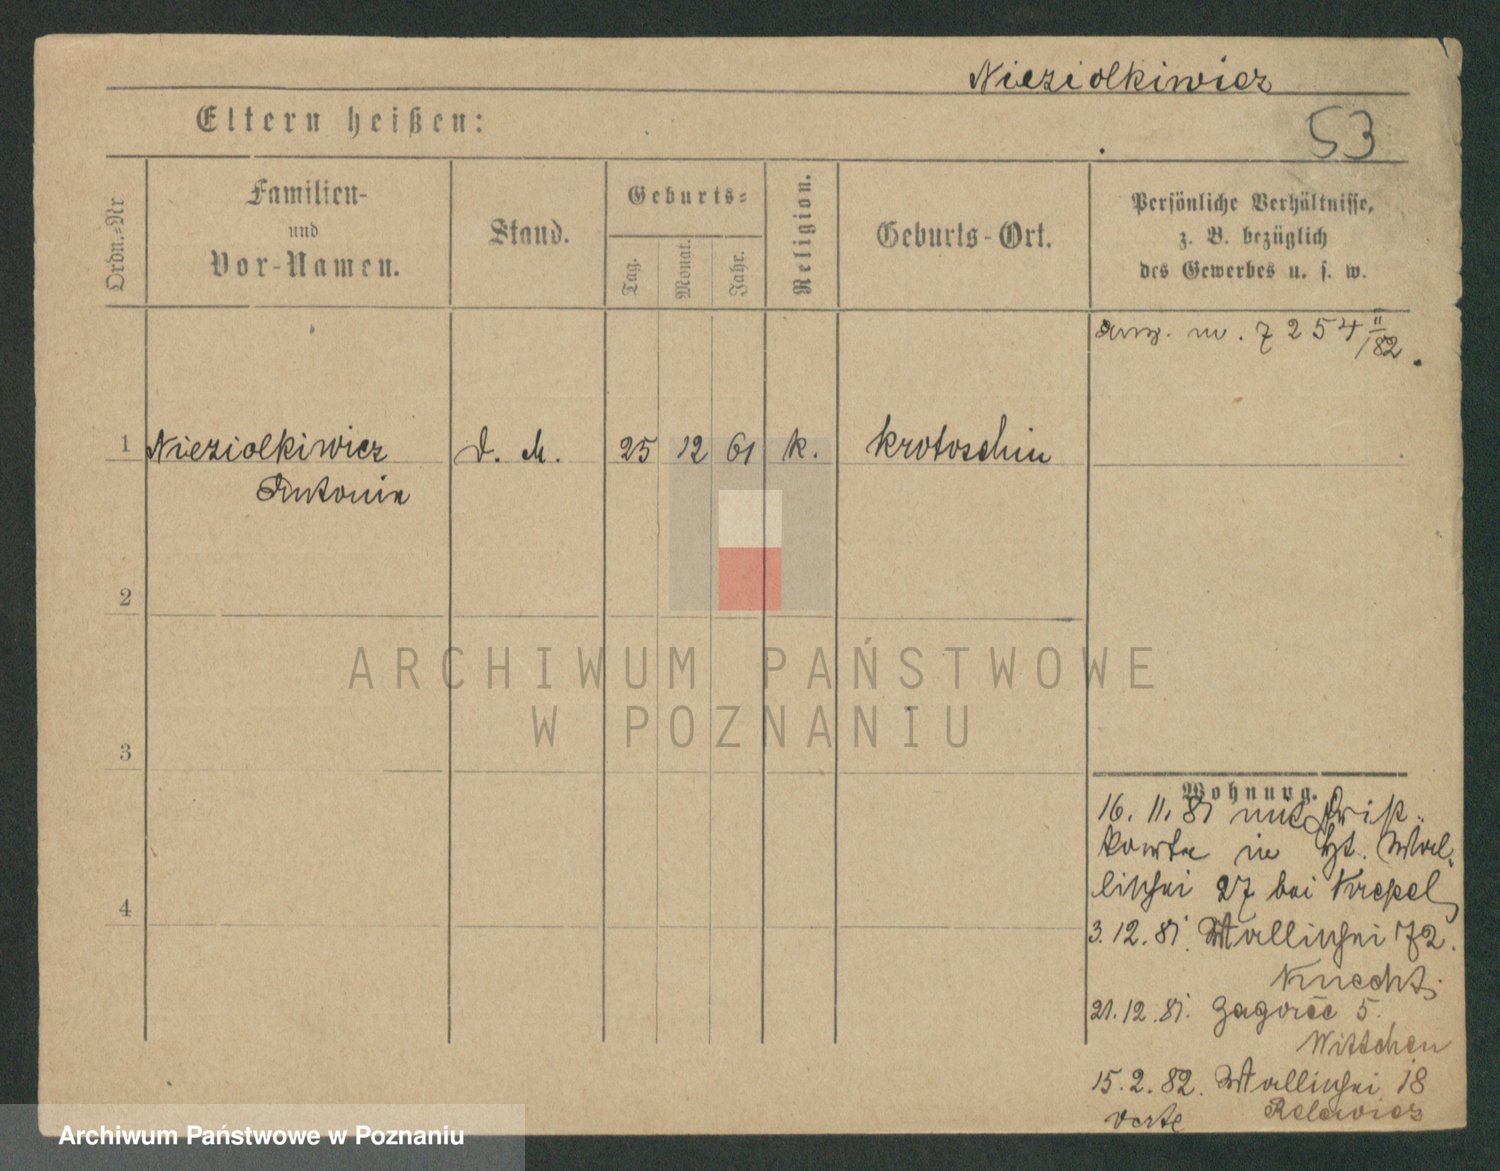 Nieziolkiewicz
Eltern heißen:
53
Ordn.-Nr
Familien-
und
Vor-Namen.
Stand.
Geburts-
Tag.
Monat.
Jahr.
Religion.
Geburts-Ort.
Persönliche Verhältnisse,
z. B. bezüglich
des Gewerbes u. s. w.
7254 II/82.
1 Nieziolkiewicz D. M. 25 12 61 k. Krotoschin
Antonie
2
3
4
Wohnung.
16. 11. 81 mit
karte in St. Wal-
lischei 27 bei
3. 12. 81. Wallischei 72.
Knecht.
21. 12. 81. Zagorze 5.
Wittchen
15. 2. 82. Wallischei 18
verte
ARCHIWUM PAŃSTWOWE
W POZNANIU
Archiwum Państwowe w Poznaniu